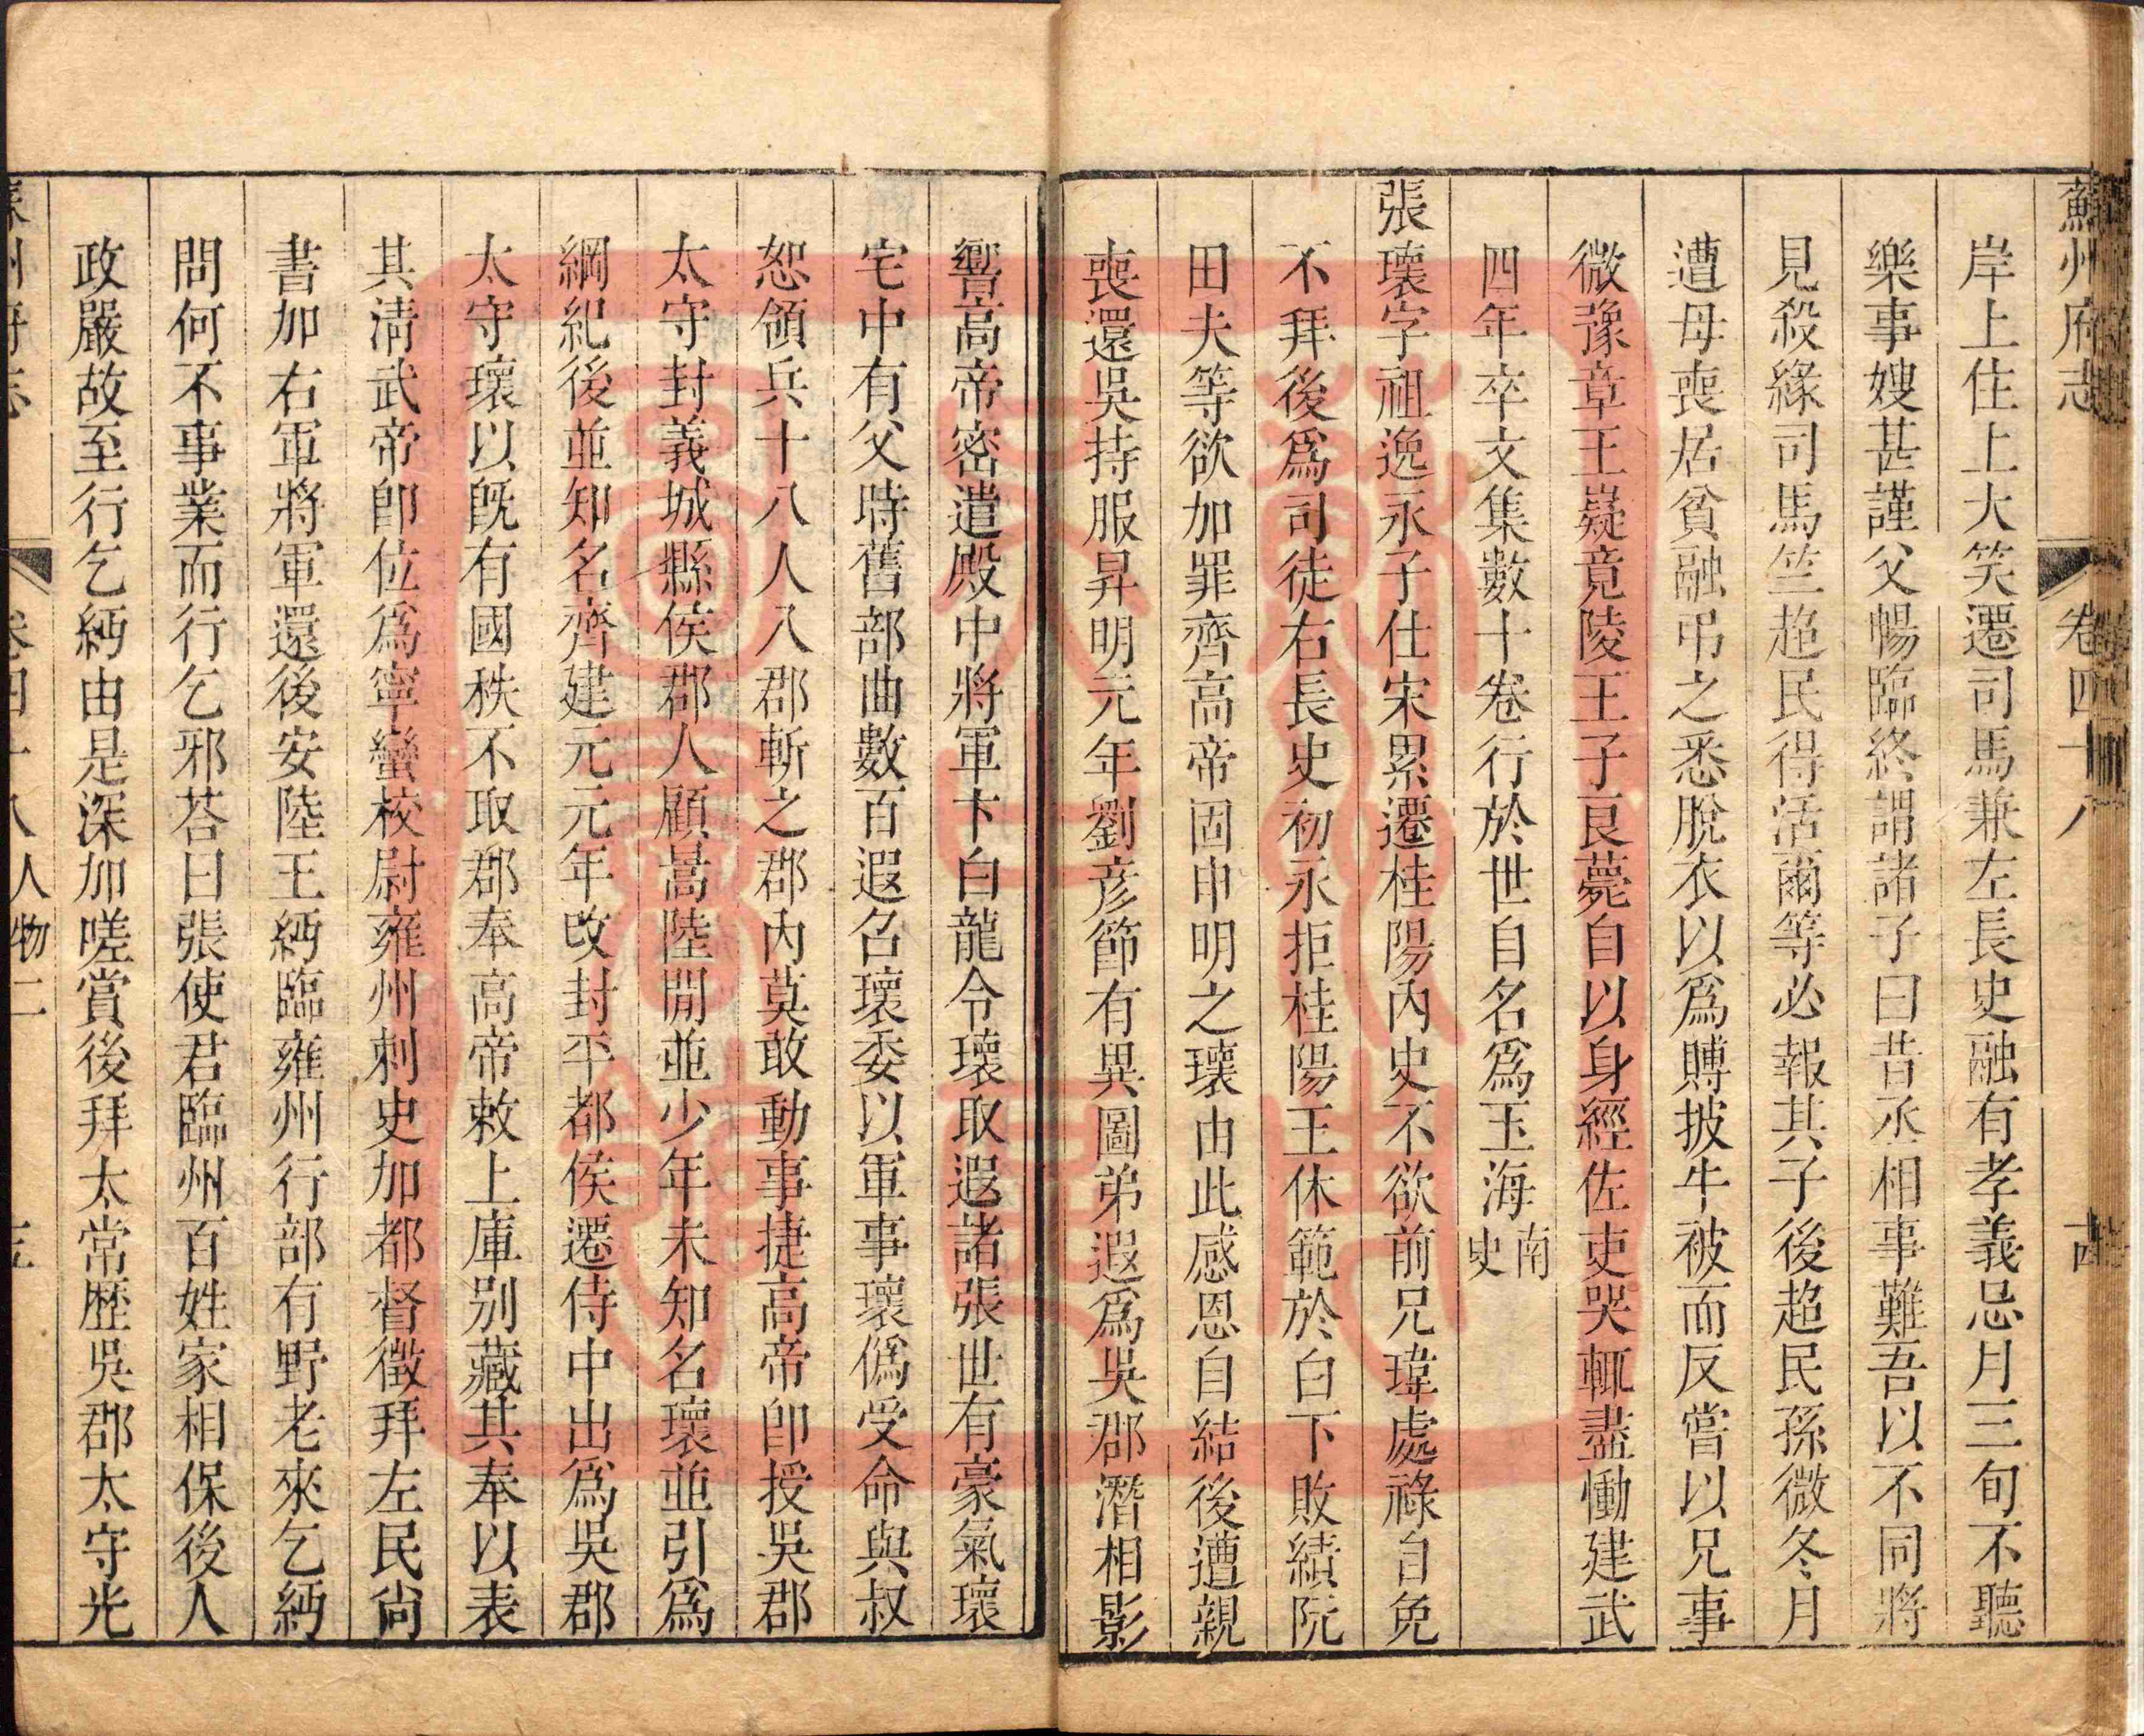 蘇州府志 卷四十八 古
岸上住上大笑遷司馬兼左長史融有孝義忌月三旬不聽
樂事嫂甚謹父暢臨終謂諸子曰昔丞相事難吾以不同將
見殺緣司馬竺超民得活爾等必報其子後超民孫微冬月
遭母喪居貧融弔之悉脫衣以爲賻披牛被而反嘗以兄事
微豫章王嶷竟陵王子良薨自以身經佐吏哭輒盡慟建武
四年卒文集數十卷行於世自名爲玉海南史
張瓌字祖逸永子仕宋累遷桂陽內史不欲前兄瑋處祿自免
不拜後爲司徒右長史初永拒桂陽王休範於白下敗績阮
田夫等欲加罪齊高帝固申明之瓌由此感恩自結後遭親
喪還吳持服昇明元年劉彥節有異圖弟遐爲吳郡潛相影
響高帝密遣殿中將軍卞白龍令瓌取遐諸張世有豪氣瓌
宅中有父時舊部曲數百遐召瓌委以軍事瓌僞受命與叔
恕領兵十八人入郡斬之郡內莫敢動事捷高帝卽授吳郡
太守封義城縣侯郡人顧暠陸閒並少年未知名瓌並引爲
綱紀後並知名齊建元元年改封平都侯遷侍中出爲吳郡
太守瓌以既有國秩不取郡奉高帝敕上庫別藏其奉以表
其淸武帝卽位爲寧蠻校尉雍州刺史加都督徵拜左民尙
書加右軍將軍還後安陸王緬臨雍州行部有野老來乞緬
問何不事業而行乞邪荅曰張使君臨州百姓家相保後人
政嚴故至行乞緬由是深加嗟賞後拜太常歷吳郡太守光
卷四十八人物二